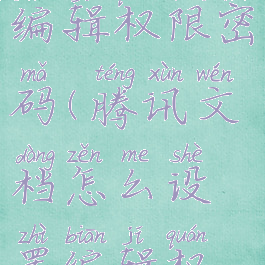 编辑权限密
mǎ téng xùn wén
码(腾讯文
dàng zěn me shè
档怎么设
zhì biān jí quán
置编辑权